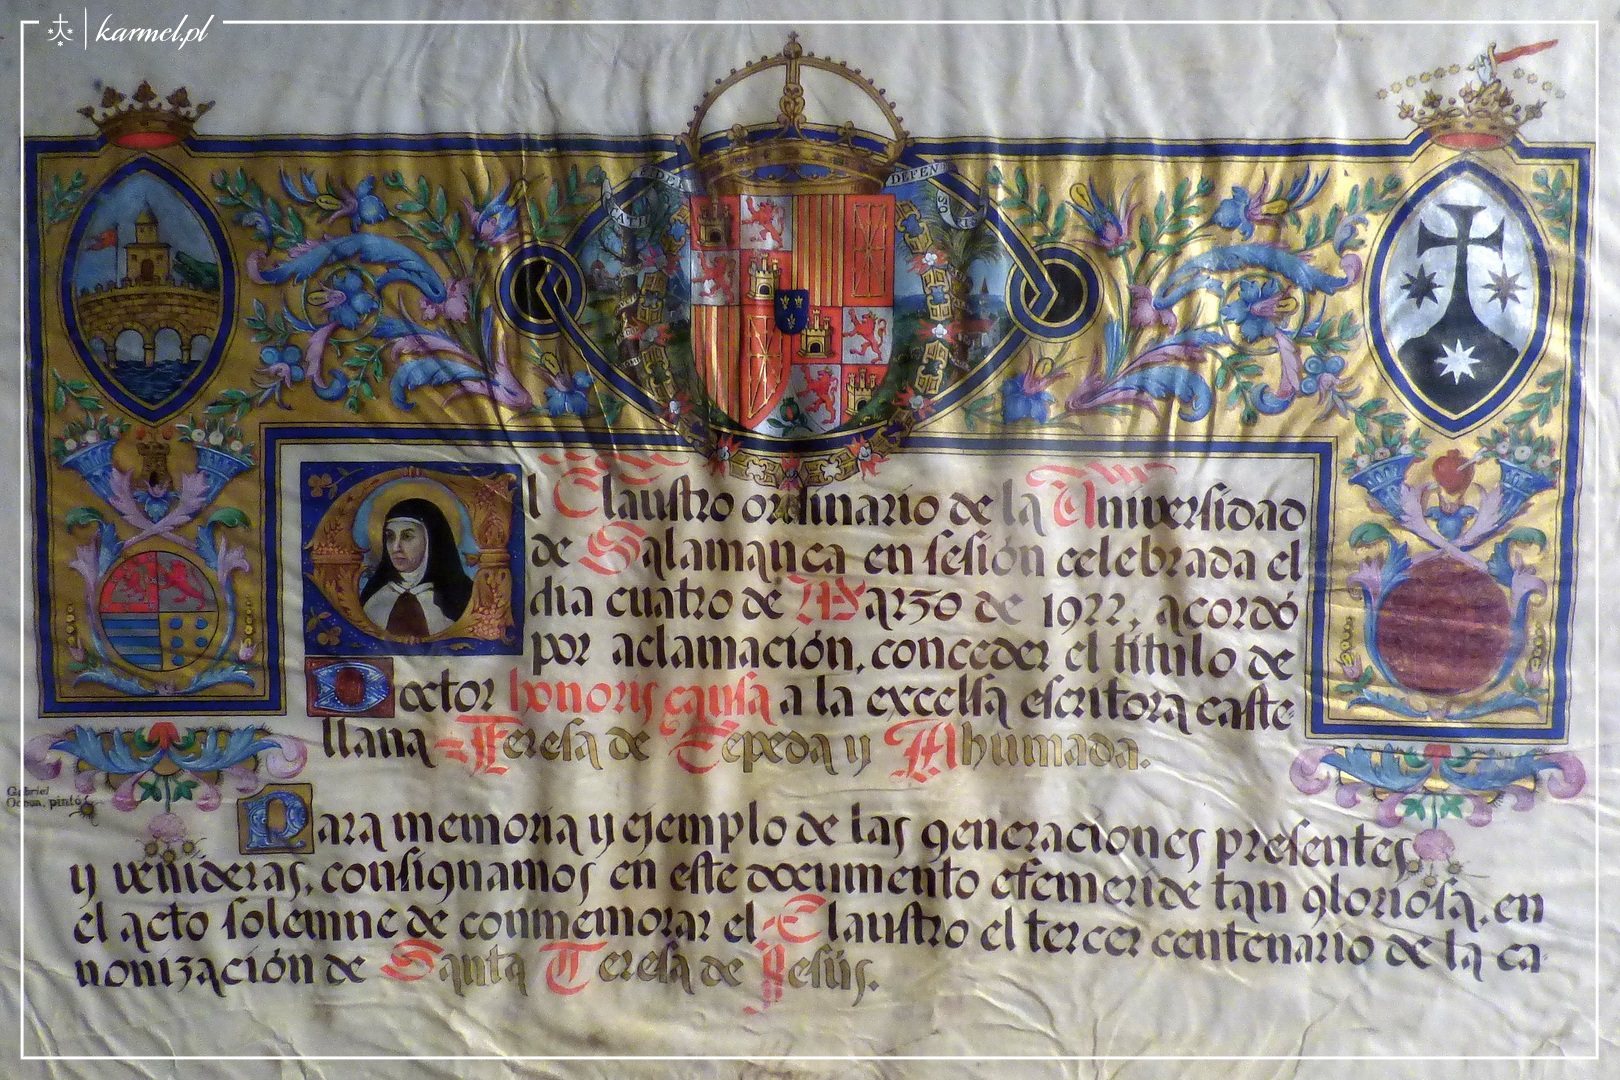 karmel.pl
FIDEI DEFENSORIS
CATH
El Claustro ordinario de la Universidad
de Salamanca en sesión celebrada el
dia cuatro de Marzo de 1922, acordó
por aclamación, conceder el titulo de
Doctor honoris causa a la excelsa escritora caste-
llana Teresa de Cepeda y Ahumada.
Gabriel
Ochoa, pintó
Para memoria y ejemplo de las generaciones presentes
y venideras, consignamos en este documento efemeride tan gloriosa, en
el acto solemne de conmemorar el Claustro el tercer centenario de la ca-
nonización de Santa Teresa de Jesús.